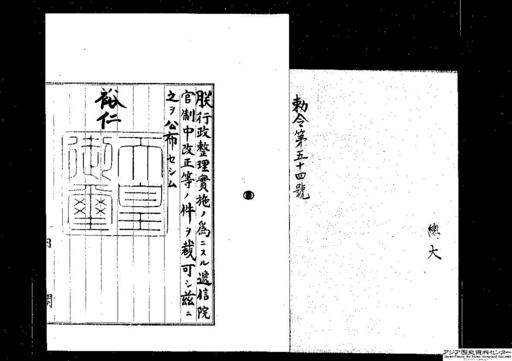 勅令第五十四號
總、大
朕行政整理實施ノ爲ニスル遞信院
官制中改正等ノ件ヲ裁可シ茲ニ
之ヲ公布セシム
裕仁
天皇御璽
アジア歴史資料センター